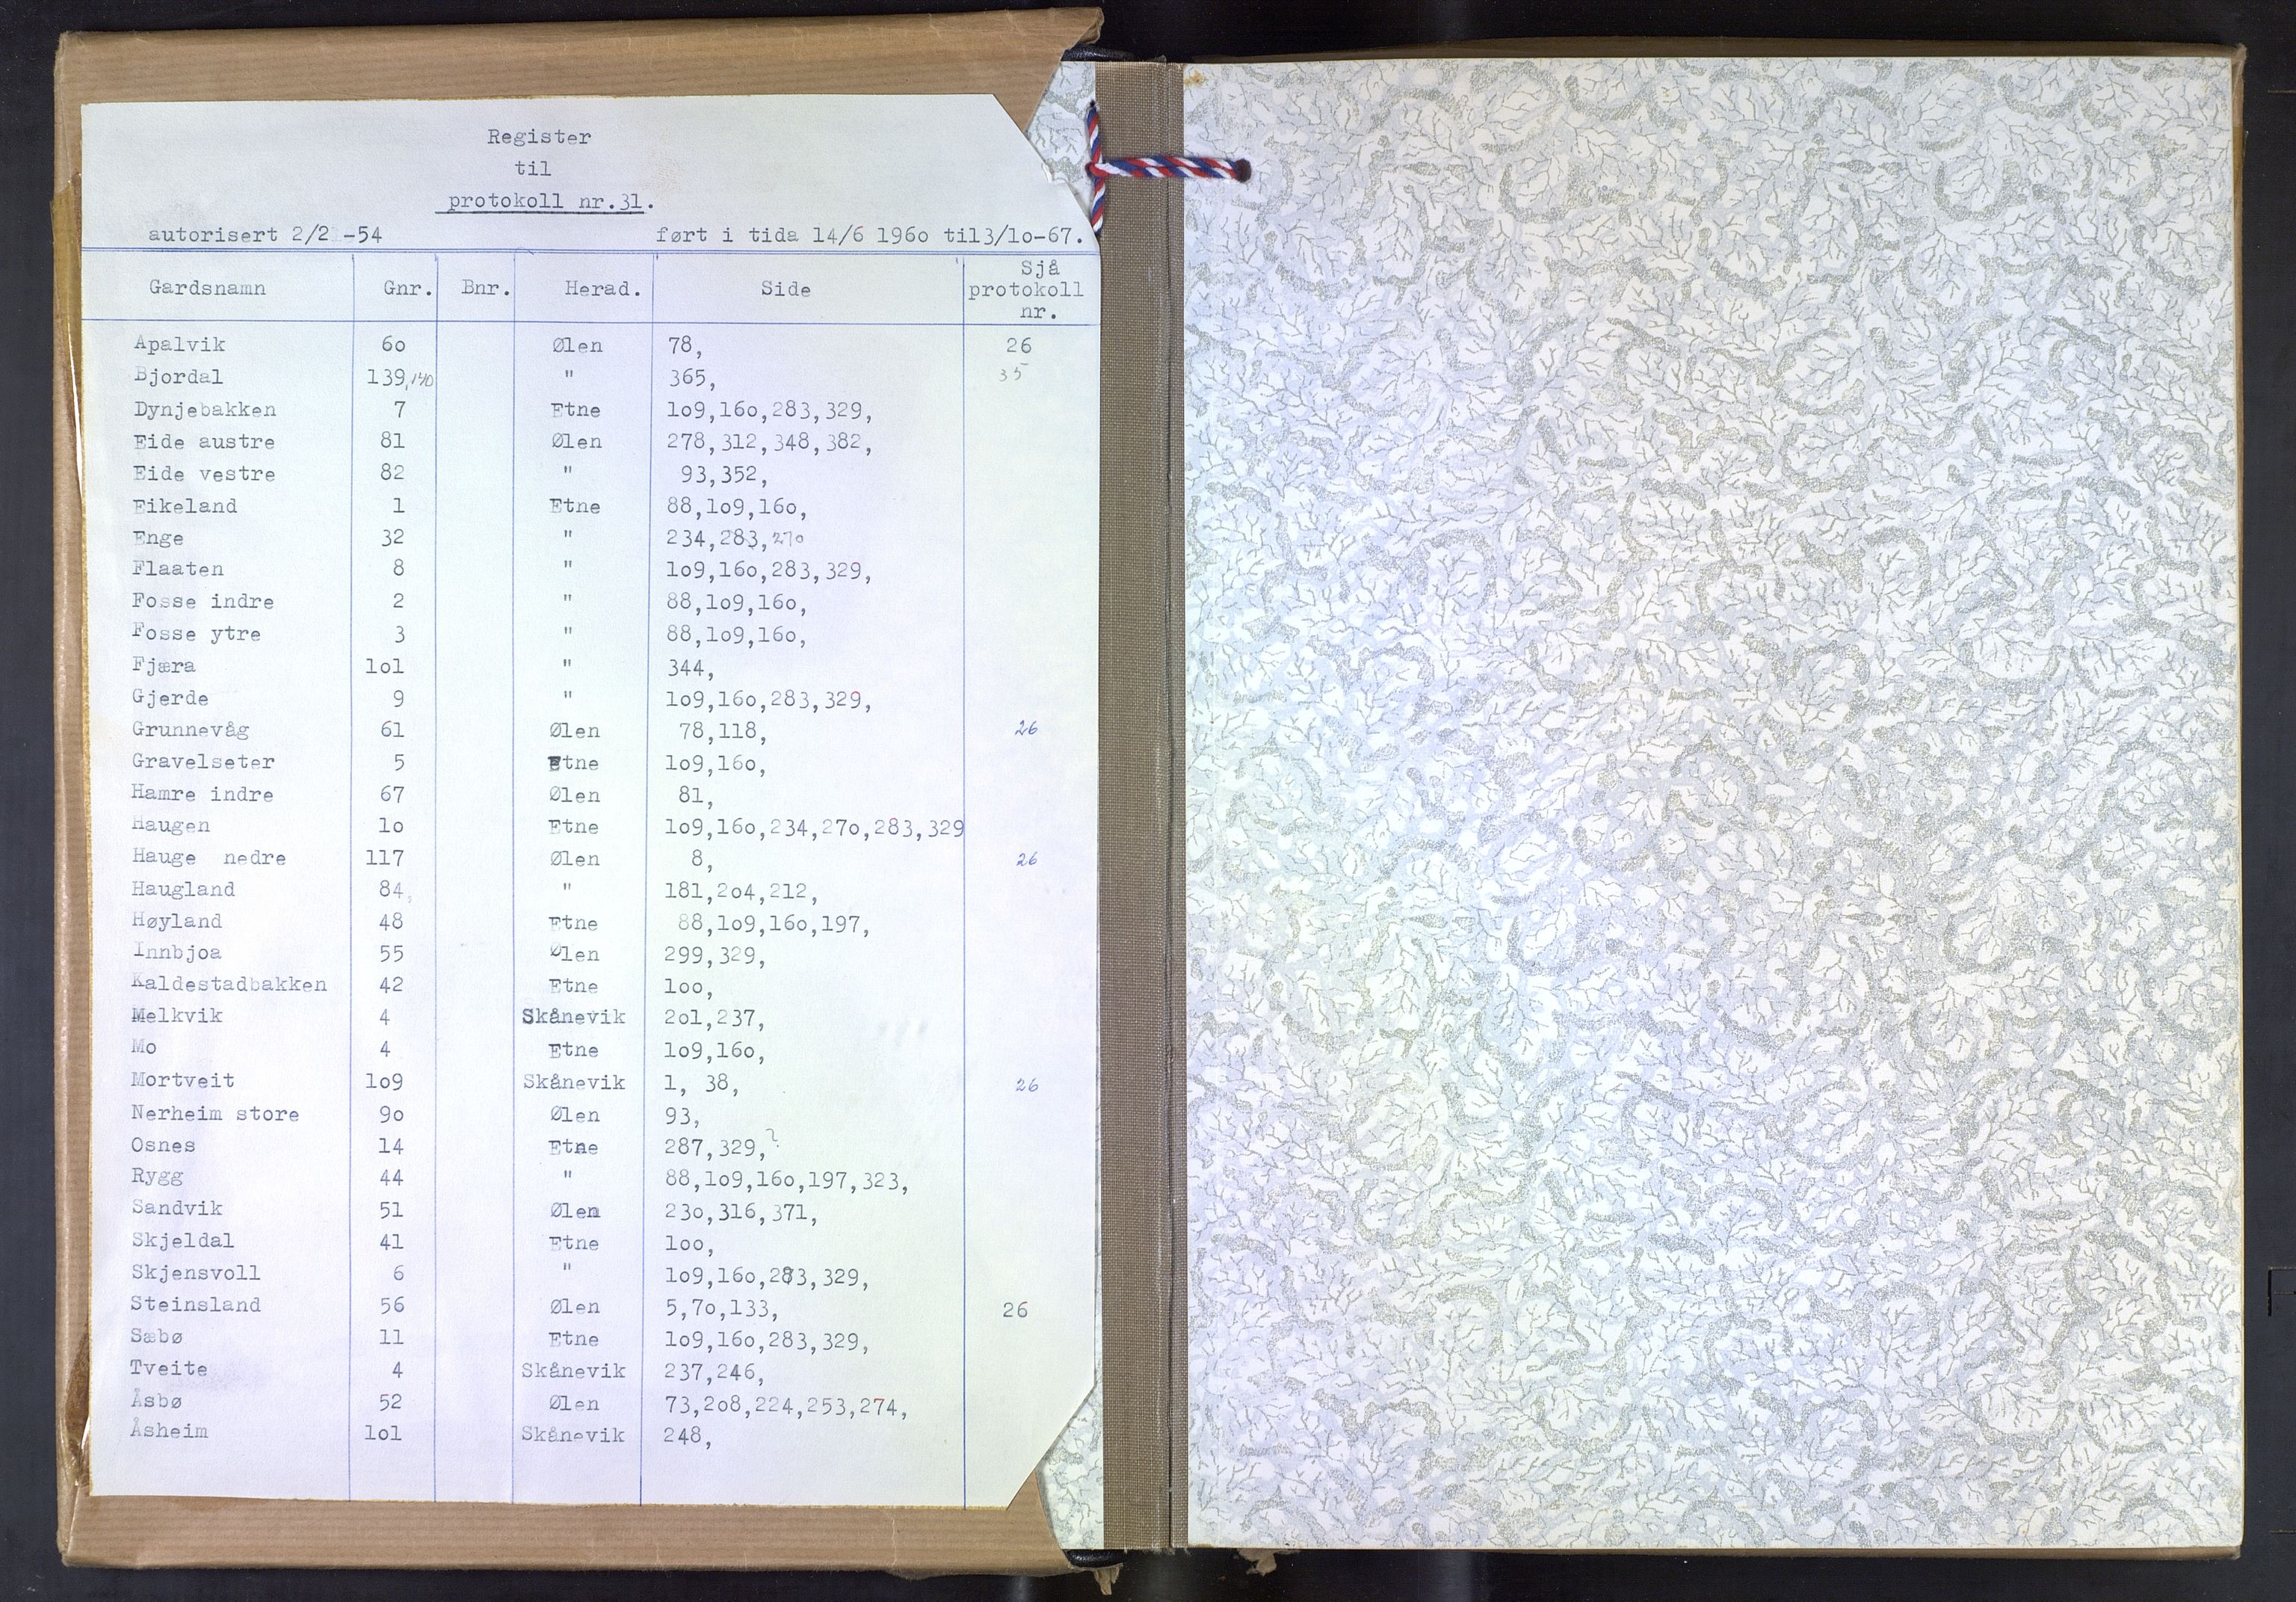 Register
til
protokoll nr.31.
autorisert 2/2 -54 ført i tida 14/6 196o til3/1o-67.
Gardsnamn Gnr. Bnr. Herad. Side Sjå protokoll nr.
Apalvik 6o Ølen 78, 26
Bjordal 139,140 " 365, 35
Dynjebakken 7 Etne 1o9,16o,283,329,
Eide austre 81 Ølen 278,312,348,382,
Eide vestre 82 " 93,352,
Eikeland 1 Etne 88,1o9,16o,
Enge 32 " 234,283,270
Flaaten 8 " 1o9,16o,283,329,
Fosse indre 2 " 88,1o9,16o,
Fosse ytre 3 " 88,1o9,16o,
Fjæra 1o1 " 344,
Gjerde 9 " 1o9,16o,283,329,
Grunnevåg 61 Ølen 78,118, 26
Gravelseter 5 Etne 1o9,16o,
Hamre indre 67 Ølen 81,
Haugen 1o Etne 1o9,16o,234,27o,283,329
Hauge nedre 117 Ølen 8, 26
Haugland 84, " 181,2o4,212,
Høyland 48 Etne 88,1o9,16o,197,
Innbjoa 55 Ølen 299,329,
Kaldestadbakken 42 Etne 1oo,
Melkvik 4 Skånevik 2o1,237,
Mo 4 Etne 1o9,16o,
Mortveit 1o9 Skånevik 1, 38, 26
Nerheim store 9o Ølen 93,
Osnes 14 Etne 287,329, ?
Rygg 44 " 88,1o9,16o,197,323,
Sandvik 51 Ølen 23o,316,371,
Skjeldal 41 Etne 1oo,
Skjensvoll 6 " 1o9,16o,283,329,
Steinsland 56 Ølen 5,7o,133, 26
Sæbø 11 Etne 1o9,16o,283,329,
Tveite 4 Skånevik 237,246,
Åsbø 52 Ølen 73,2o8,224,253,274,
Åsheim 1o1 Skånevik 248,